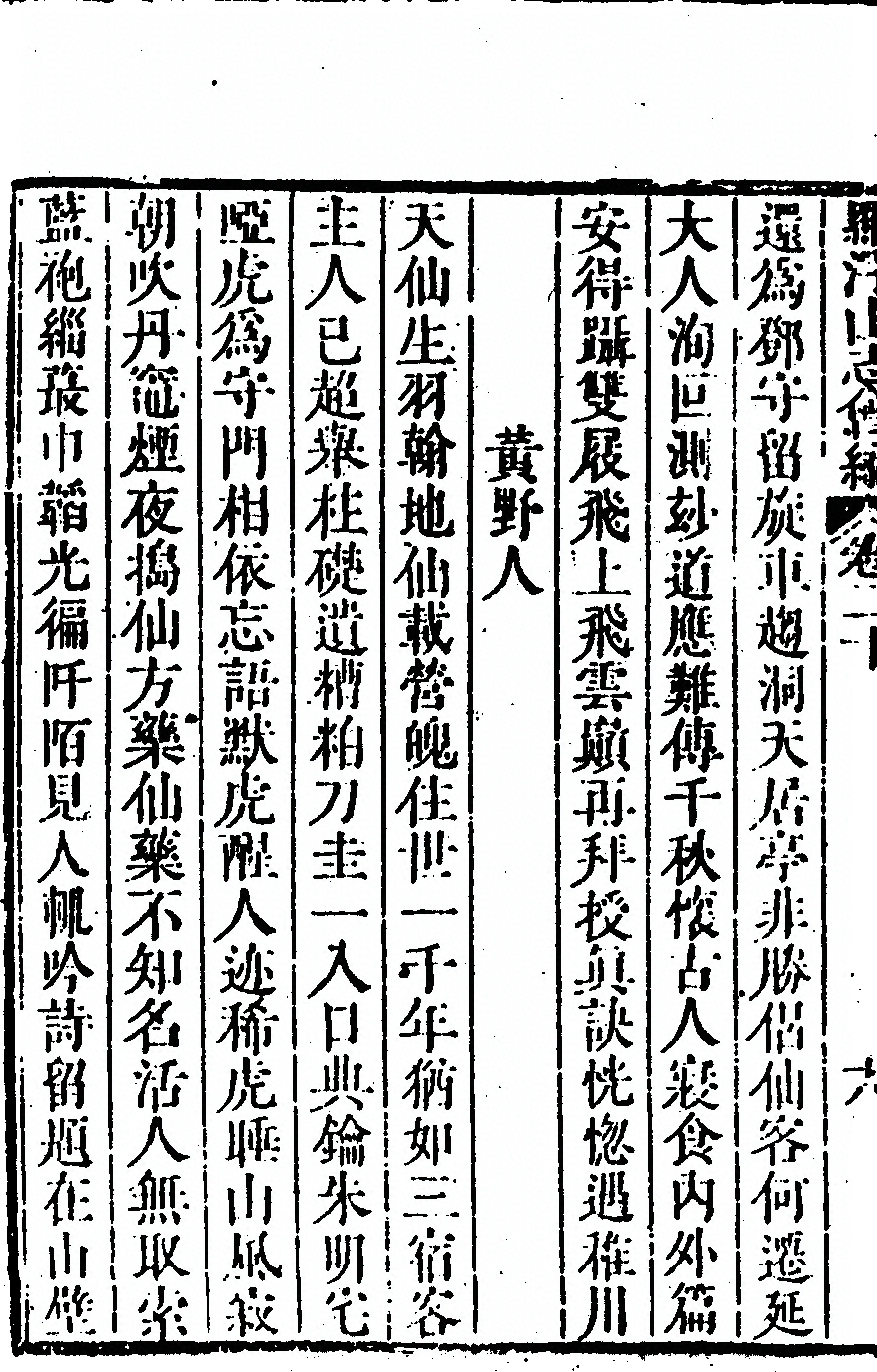 羅浮山志會編 卷二十 六
還爲鄧守留旋車趨洞天居亭非勝侶仙客何遷延
大人洵叵測玅道應難傳千秋懷古人寢食內外篇
安得躡雙屐飛上飛雲巔再拜授眞訣恍惚遇稚川
黃野人
天仙生羽翰地仙載營魄住世一千年猶如三宿客
主人已超舉柱礎遺糟粕刀圭一入口典鑰朱明宅
啞虎爲守門相依忘語默虎醒人迹稀虎睡山風寂
朝吹丹竈煙夜搗仙方藥仙藥不知名活人無取索
藍袍緇蕞巾韜光徧阡陌見人輒吟詩留題在山壁